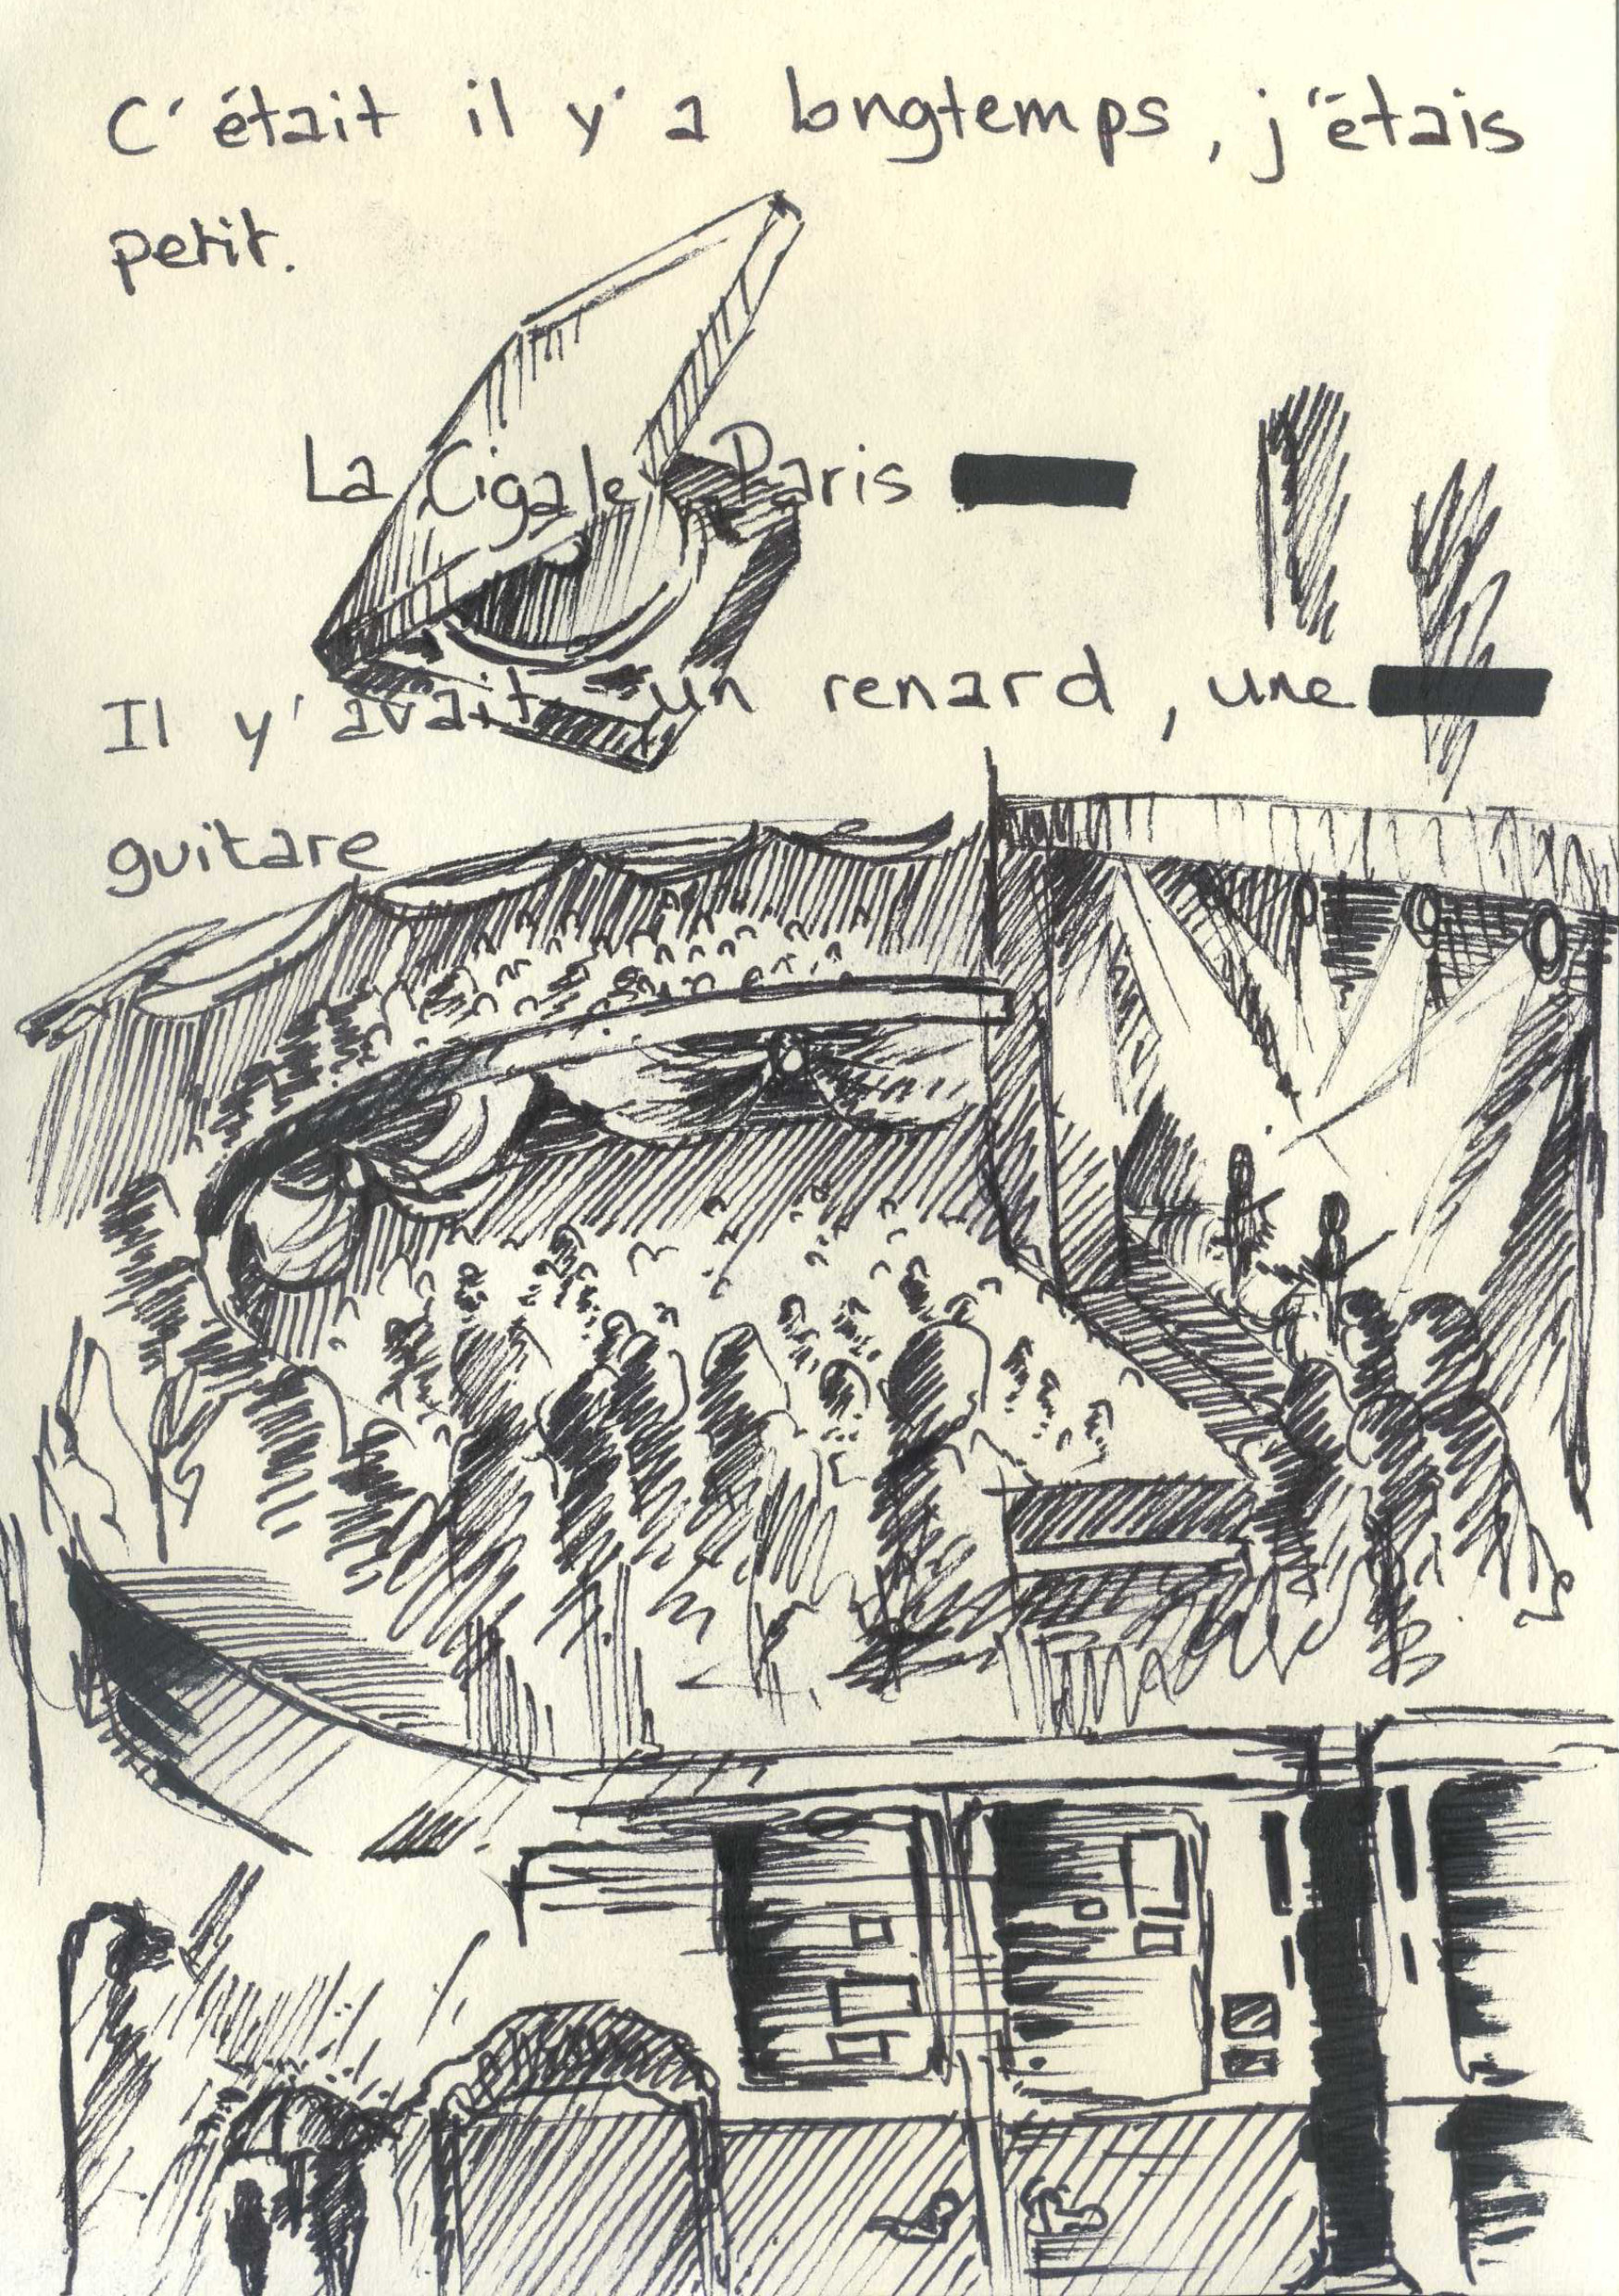 C'était il y'a longtemps, j'étais
petit.
La Cigale Paris
Il y'avait un renard, une
guitare